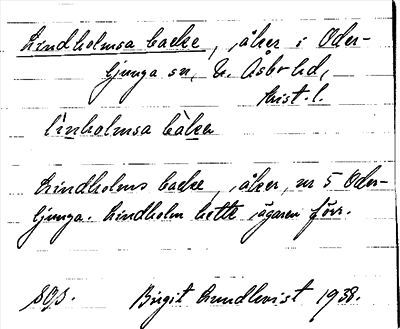 Lindholmsa backe, åker i Oder-
ljunga sn, N. Åsbo hd,
Krist. l.
linholmsa bàkə
Lindholms backe, åker, nr 5 Oder-
ljunga. Lindholm hette ägaren förr.
SOS. Birgit Rundkvist 1938.